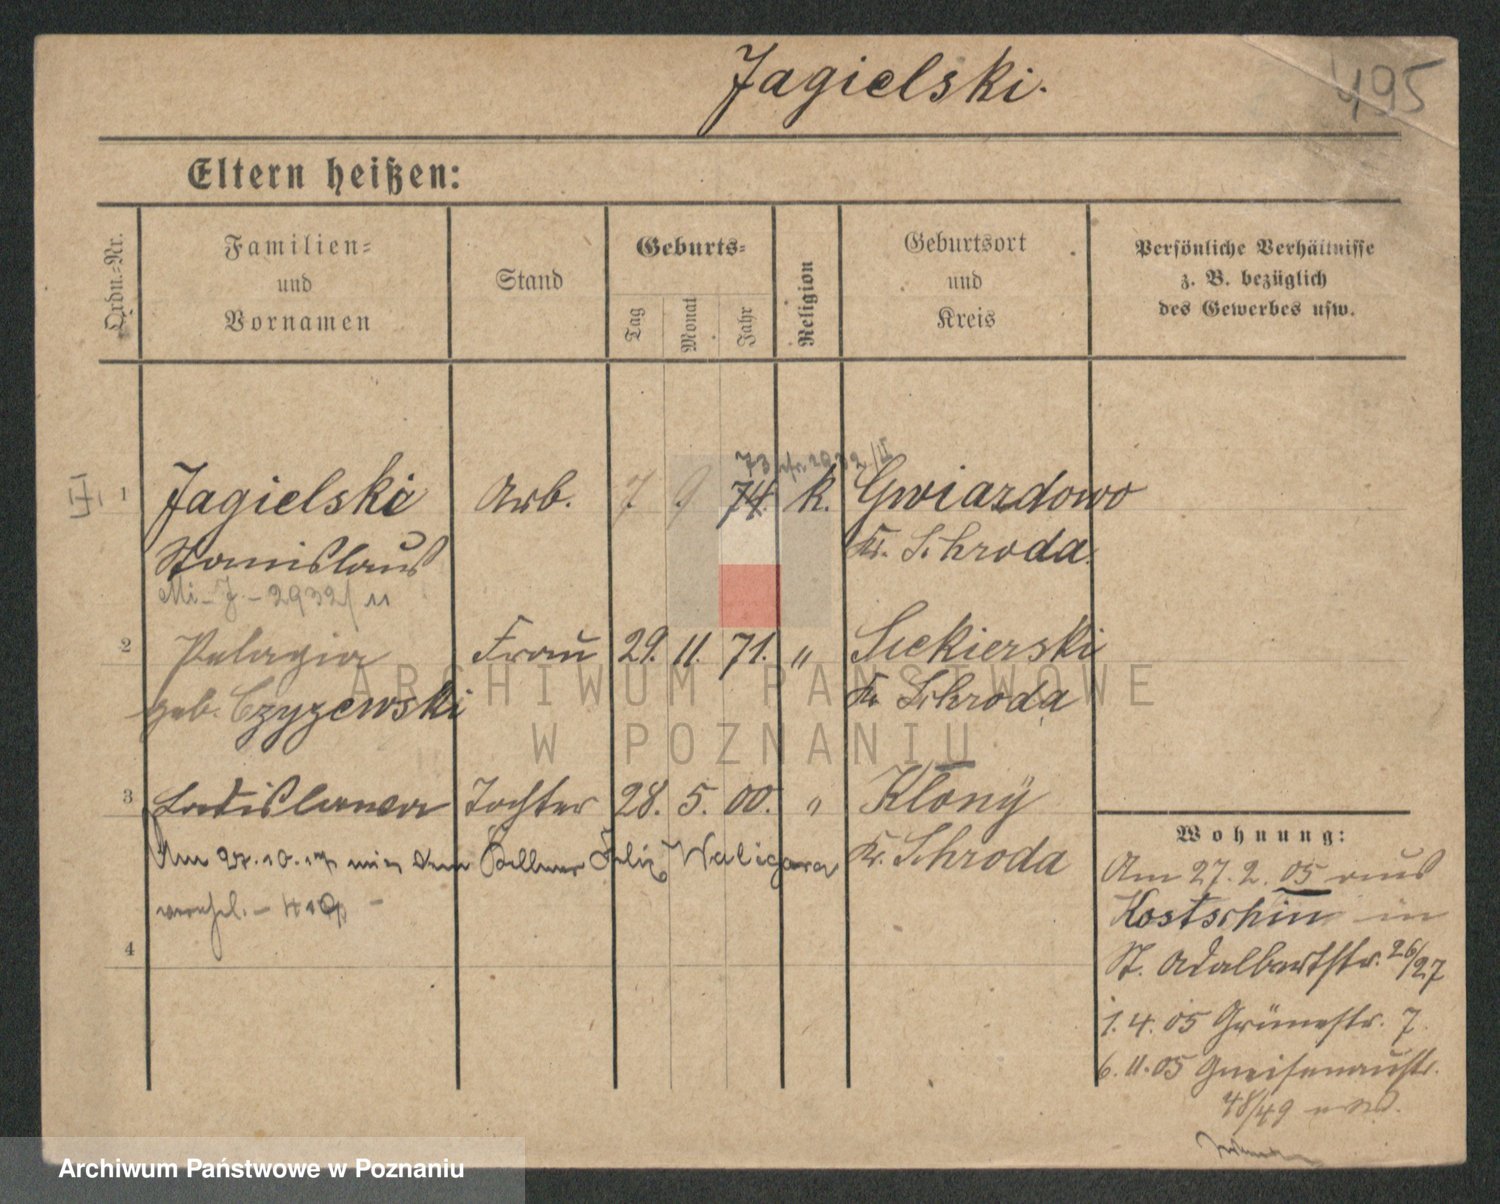 Jagielski.
495
Eltern heißen:
Ordn.-Nr.
Familien-
und
Vornamen
Stand
Geburts-
Tag
Monat
Jahr
Religion
Geburtsort
und
Kreis
Persönliche Verhältnisse
z. B. bezüglich
des Gewerbes usw.
73 2932/11
1 Jagielski Arb. 7. 9. 74. k. Gwiazdowo
Stanislaus Kr. Schroda.
Mi-J-2932/11
2 Pelagia Frau 29. 11. 71. " Siekierski
geb. Czyzewski Kr. Schroda
3 Ladislawa Tochter 28. 5. 00. " Klony
Kr. Schroda
Am 27.10.17 mit dem Kellner Felix Waligora
verehel.
4
Wohnung:
Am 27. 2. 05 aus
Kostschin in
St. Adalbertstr. 26/27
1. 4. 05 Grünestr. 7.
6. 11. 05 Gneisenaustr.
48/49
ARCHIWUM PAŃSTWOWE
W POZNANIU
Archiwum Państwowe w Poznaniu